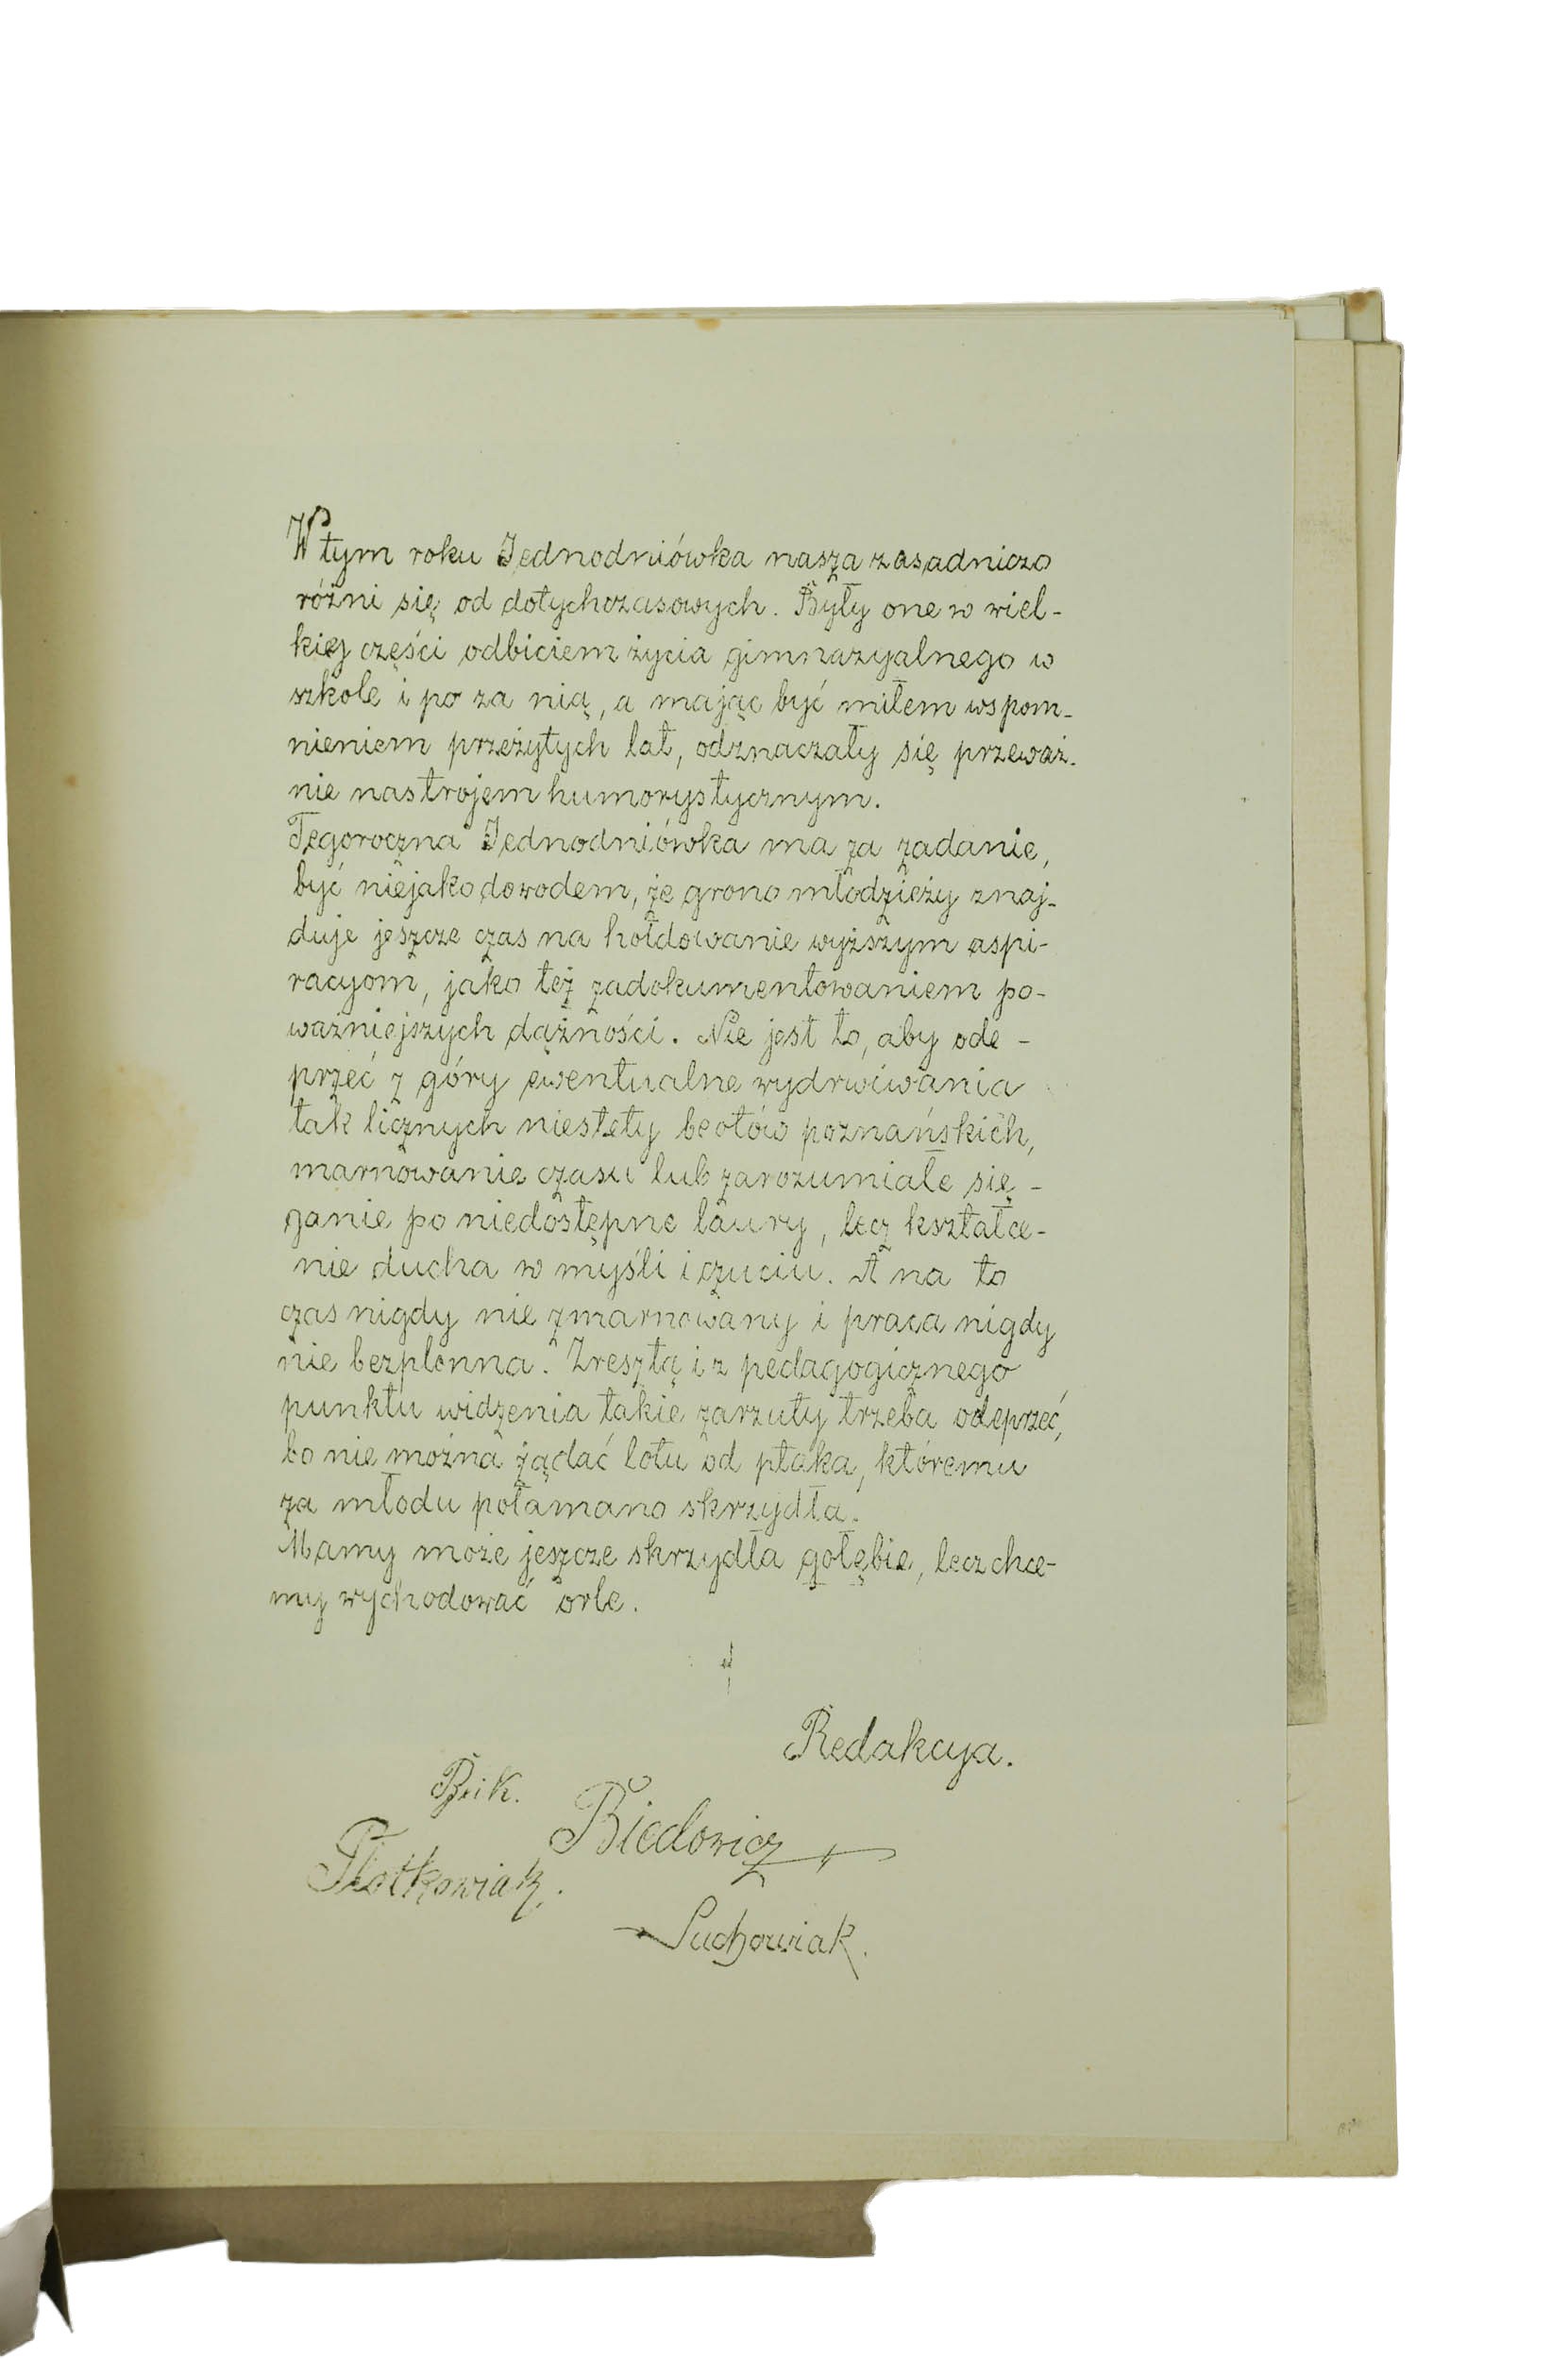 W tym roku Jednodniówka nasza zasadniczo
różni się od dotychczasowych. Były one w wiel-
kiej części odbiciem życia gimnazyalnego w
szkole i po za nią, a mając być miłem wspom-
nieniem przeżytych lat, odznaczały się przeważ-
nie nastrojem humorystycznym.
Tegoroczna Jednodniówka ma za zadanie,
być niejako dowodem, że grono młodzieży znaj-
duje jeszcze czas na hołdowanie wyższym aspi-
racyom, jako też zadokumentowaniem po-
ważniejszych dążności. Nie jest to, aby ode-
przeć z góry ewentualne wydrwiwania
tak licznych niestety beotów poznańskich,
marnowanie czasu lub zarozumiałe się-
ganie po niedostępne laury, lecz kształce-
nie ducha w myśli i czuciu. A na to
czas nigdy nie zmarnowany i praca nigdy
nie bezplonna. Zresztą i z pedagogicznego
punktu widzenia takie zarzuty trzeba odeprzeć,
bo nie można żądać lotu od ptaka, któremu
za młodu połamano skrzydła.
Mamy może jeszcze skrzydła gołębie, lecz chce-
my wychodować orle.
Redakcya.
Biedowicz
Płotkowiak.
Suchowiak.